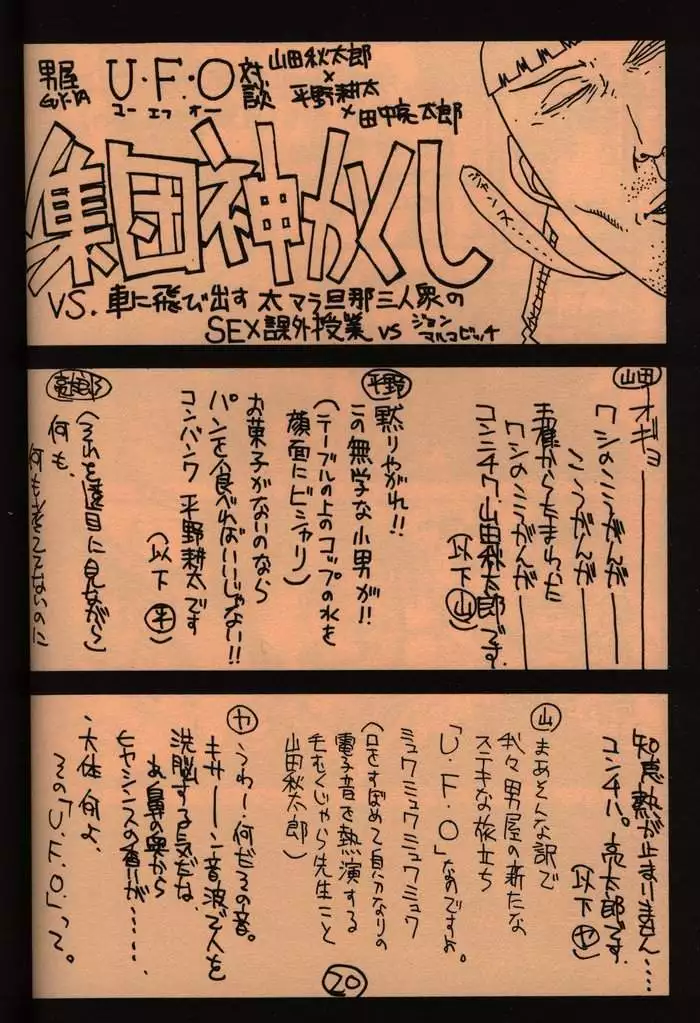 男屋
U・F・O
ユー エフ オー
対談
山田秋太郎
×
平野耕太
×田中亮太郎
集団神かくし
VS. 車に飛び出す 太マラ旦那三人衆の
SEX課外授業 VS ジョン
マルコビッチ
シャンス
山田
オギョ――
ワシのこうがんが――
こうがんが――
ワシのこうがんが――
コンニチワ、山田秋太郎です。
(以下 山)
平野
黙りやがれ!!
この無学な小男が!!
(テーブルの上のコップの水を
顔面にビシャリ)
お菓子がないのなら
パンを食べればいーじゃない!!
コンバンワ 平野耕太です
(以下 平)
亮太郎
(それを遠目に見ながら)
何も、
何も考えてないのに
知恵熱が止まりません‥‥
コンチハ。亮太郎です。
(以下 ヤ)
山
まあそんな訳で
我々男屋の新たな
ステキな旅立ち
「U・F・O」なのですよ。
ミュワミュワミュワミュワ
(口をすぼめて自分なりの
電子音を熱演する
毛むくじゃら先生こと
山田秋太郎)
ヤ
うわー、何だその音。
キサーン音波で人を
洗脳する気だな、
お鼻の奥から
ヒヤシンスの香りが‥‥‥
、大体何よ、
その「U・F・O」って。
20